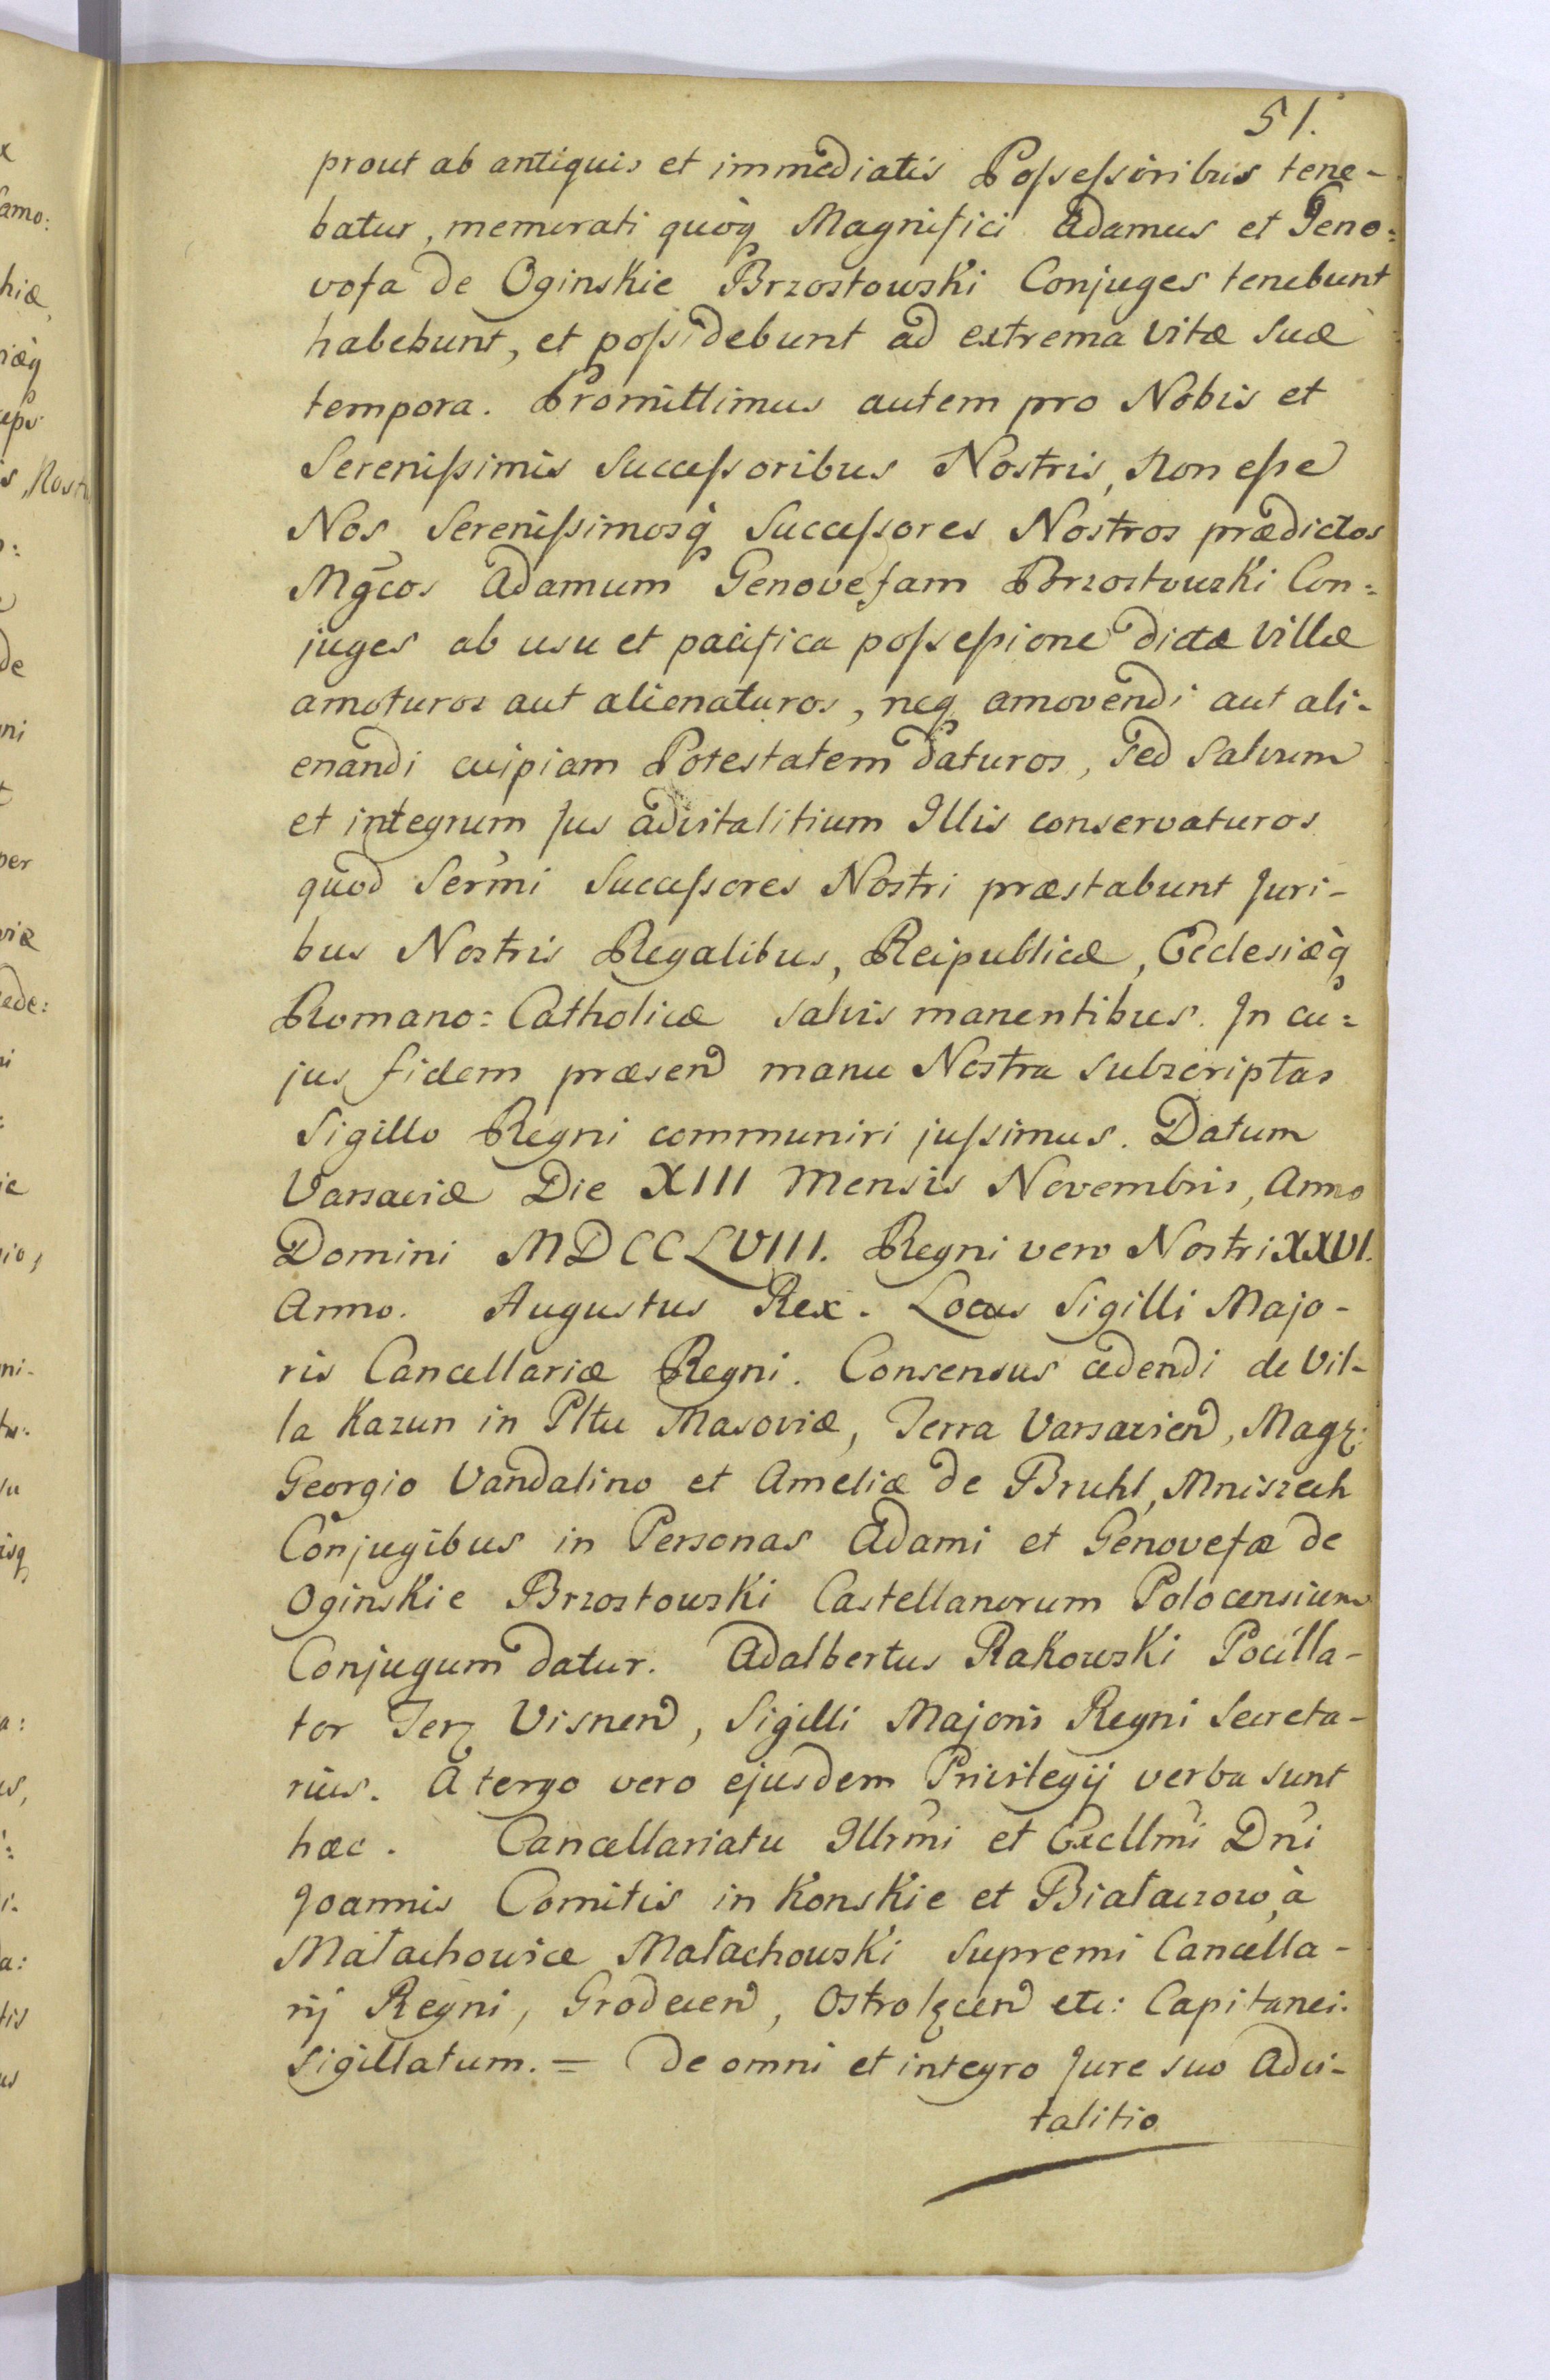 51.
prout ab antiquis et immediatis Possessoribus tene-
batur, memorati quòq Magnifici Adamus et Geno:
vofa de Oginskie Brzostowski Conjuges tenebunt
habebunt, et possidebunt ad extrema vitæ suæ
tempora. Promittimus autem pro Nobis et
Serenissimis Successoribus Nostris, Non esse
Nos Serenissimosq̀ Successores Nostros prædictos
Mg̃cos Adamum Genovefam Brzostowski Con:
juges ab usu et pacifica possessione dictæ Villæ
amoturos aut alienaturos, neq amovendi aut ali-
enandi cuipiam Potestatem daturos, sed Salvum
et integrum Jus advitalitium Illis conservaturos
quod Serm̃i Successores Nostri præstabunt Juri-
bus Nostris Regalibus, Reipublicæ, Ecclesiæq̀
Romano: Catholicæ salvis manentibus. In cu:
jus fidem præsend manu Nostra subscriptas
Sigillo Regni communiri jussimus. Datum
Varsaviæ Die XIII Mensis Novembris, Anno
Domini MDCCLVIII. Regni vero Nostri XXVI.
Anno. Augustus Rex. Locus Sigilli Majo-
ris Cancellariæ Regni. Consensus cedendi de Vil-
la Kazun in Pltu Masoviæ, Terra Varsaviend, Magz:
Georgio Vandalino et Ameliæ de Bruhl, Mniszech
Conjugibus in Personas Adami et Genovefæ de
Oginskie Brzostowski Castellanorum Polocensium
Conjugum datur. Adalbertus Rakowski Pocilla-
tor Terz Visnend, Sigilli Majoris Regni Secreta-
rius. A tergo vero ejusdem Privilegij verba sunt
hæc. Cancellariatu Illrm̃i et Excellm̃i Dñi
Joannis Comitis in Konskie et Białaczow, à
Małachowice Małachowski Supremi Cancella-
rij Regni, Grodecend, Ostrołęcend etc: Capitanei.
Sigillatum. = De omni et integro Jure suo Advi-
talitio